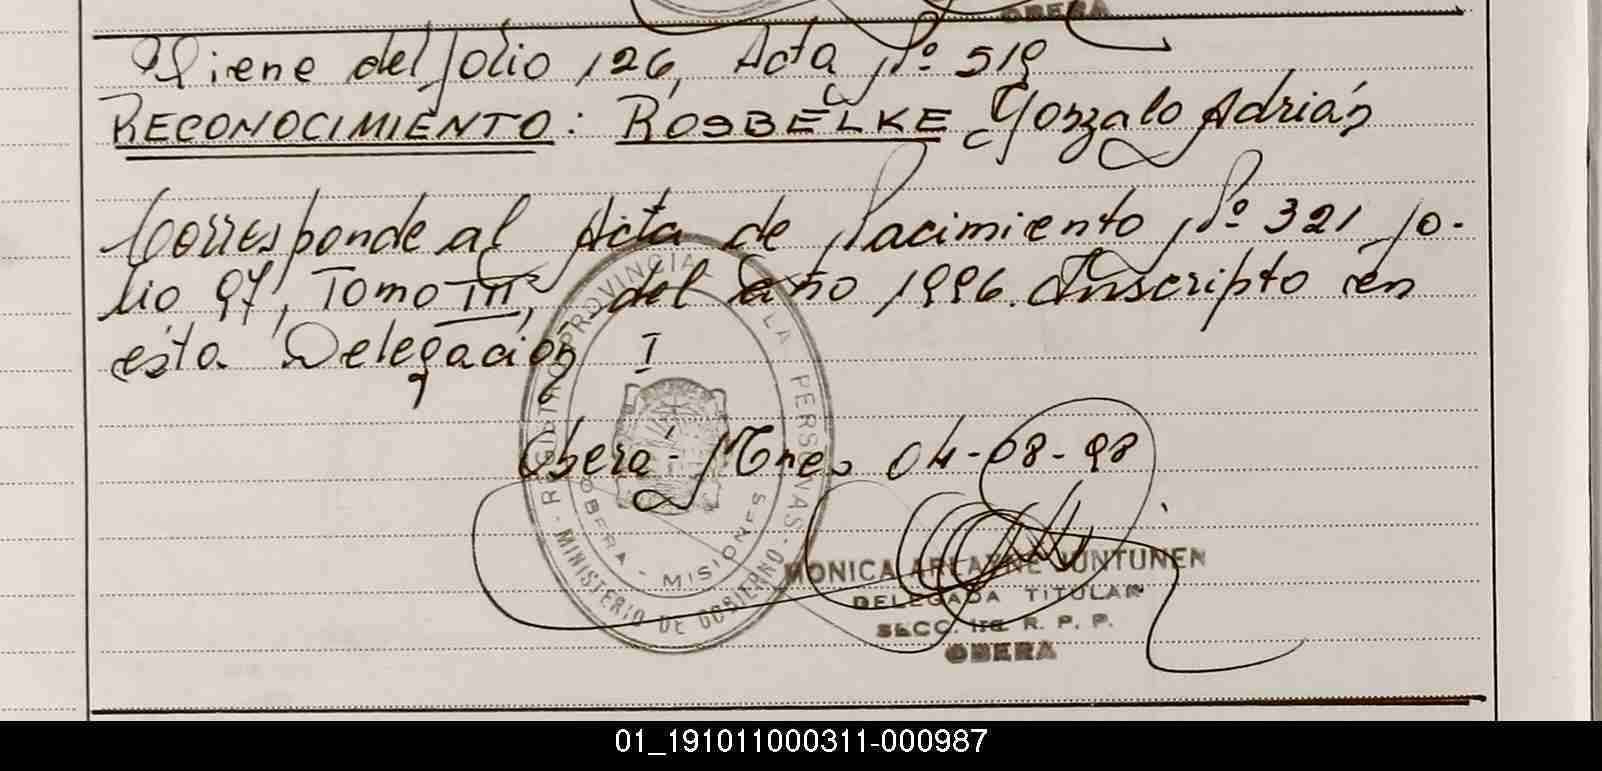 OBERA
Viene del folio 126, Acta Nº 519
RECONOCIMIENTO: ROSBELKE Gonzalo Adrián
Corresponde al Acta de Nacimiento Nº 321 fo-
lio 97, Tomo III, del año 1996. Inscripto en
esta Delegación I
REGISTRO PROVINCIAL DE LAS PERSONAS
MINISTERIO DE GOBIERNO
OBERA - MISIONES
Oberá - Mnes 04-08-98
MONICA ARLAYNE JUNTUNEN
DELEGADA TITULAR
SECC. 1ra R. P. P.
OBERA
01_191011000311-000987